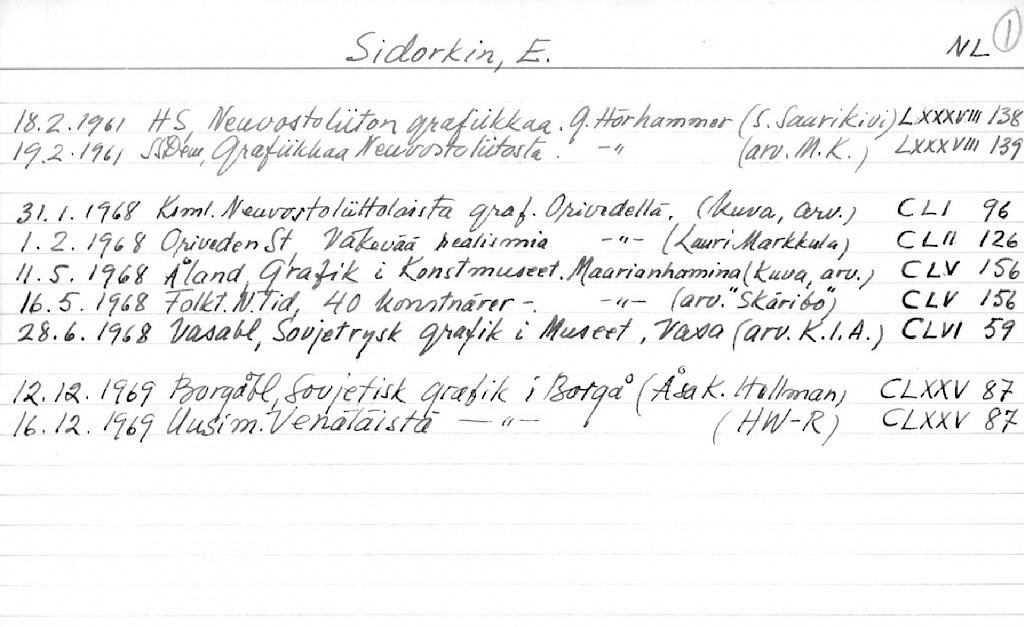 Sidorkin, E. NL 1
18.2.1961 HS, Neuvostoliiton grafiikkaa. G. Hörhammer (S. Saurikivi) LXXXVIII 138
19.2.1961 SSDem, Grafiikkaa Neuvostoliitosta. -"- (arv. M.K.) LXXXVIII 139
31.1.1968 Ksml. Neuvostoliittolaista graf. Orivedellä. (kuva, arv.) CLI 96
1.2.1968 Oriveden St, Väkevää realismia -"- (Lauri Markkula) CLII 126
11.5.1968 Åland, Grafik i Konstmuseet. Maarianhamina (kuva, arv.) CLV 156
16.5.1968 Folkt. N.Tid, 40 konstnärer -. -"- (arv. "Skäribo") CLV 156
28.6.1968 Vasabl, Sovjetrysk grafik i Museet, Vasa (arv. K.I.A.) CLVI 59
12.12.1969 Borgåbl, Sovjetisk grafik i Borgå (Åsa K. Hellman) CLXXV 87
16.12.1969 Uusim. Venäläistä -"- (HW-R) CLXXV 87